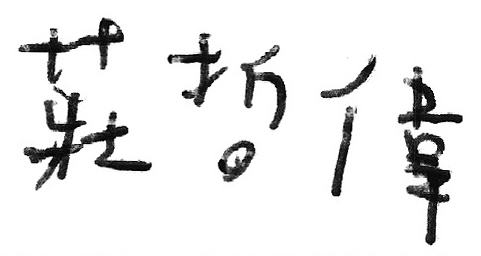 莊哲偉